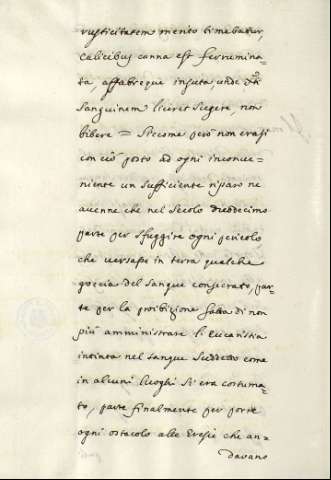 rusticitatem mento timebatur,
calicibus canna est ferrumina=
ta, affabreque inserta, unde
sanguinem liceret sugere, non
bibere = Siccome però non erasi
con ciò posto ad ogni inconve=
niente un sufficiente riparo ne
avenne che nel Secolo duodecimo
parte per sfuggire ogni pericolo
che versasse in terra qualche
goccia del sangue consecrato, par=
te per la proibizione fatta di non
più amministrare li Eucaristia
intinta nel sangue suddetto come
in alcuni luoghi si era costuma=
to, parte finalmente per porre
ogni ostacolo alle Eresie che an=
davano